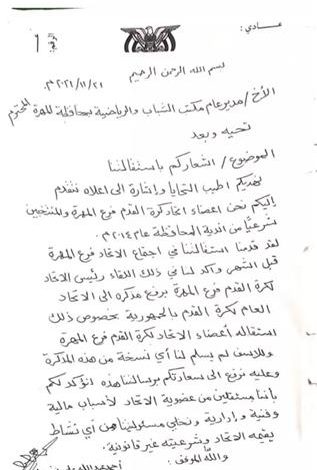 عادي:
بسم الله الرحمن الرحيم
٢٠٢١/١١/٢١م.
الأخ/ مدير عام مكتب الشباب والرياضية بمحافظة المهرة المحترم
تحيه وبعد
الموضوع/ اشعاركم باستقالتنا
نهديكم أطيب التحايا وإشارة الى اعلاه نتقدم
إليكم نحن اعضاء اتحاد كرة القدم فرع المهرة والمنتخبين
شرعياً من اندية المحافظة عام ٢٠١٤م.
لقد قدمنا استقالتنا في اجماع الاتحاد فرع المهرة
قبل الشهر واكد لنا في ذلك اللقاء رئيس الاتحاد
لكرة القدم فرع المهرة برفع مذكره الى الاتحاد
العام لكرة القدم بالجمهورية بخصوص ذلك
استقاله أعضاء الاتحاد لكرة القدم فرع المهرة
وللاسف لم يسلم لنا أي نسخة من هذه المذكرة
وعليه نرفع الى سعادتكم برسالتنا هذه لنؤكد لكم
بأننا مستقلين من عضوية الاتحاد لأسباب مالية
وفنية وإدارية ونخلي مسئوليتنا من أي نشاط
يقيمه الاتحاد وشرعيته غير قانونية.
والله الموفق،